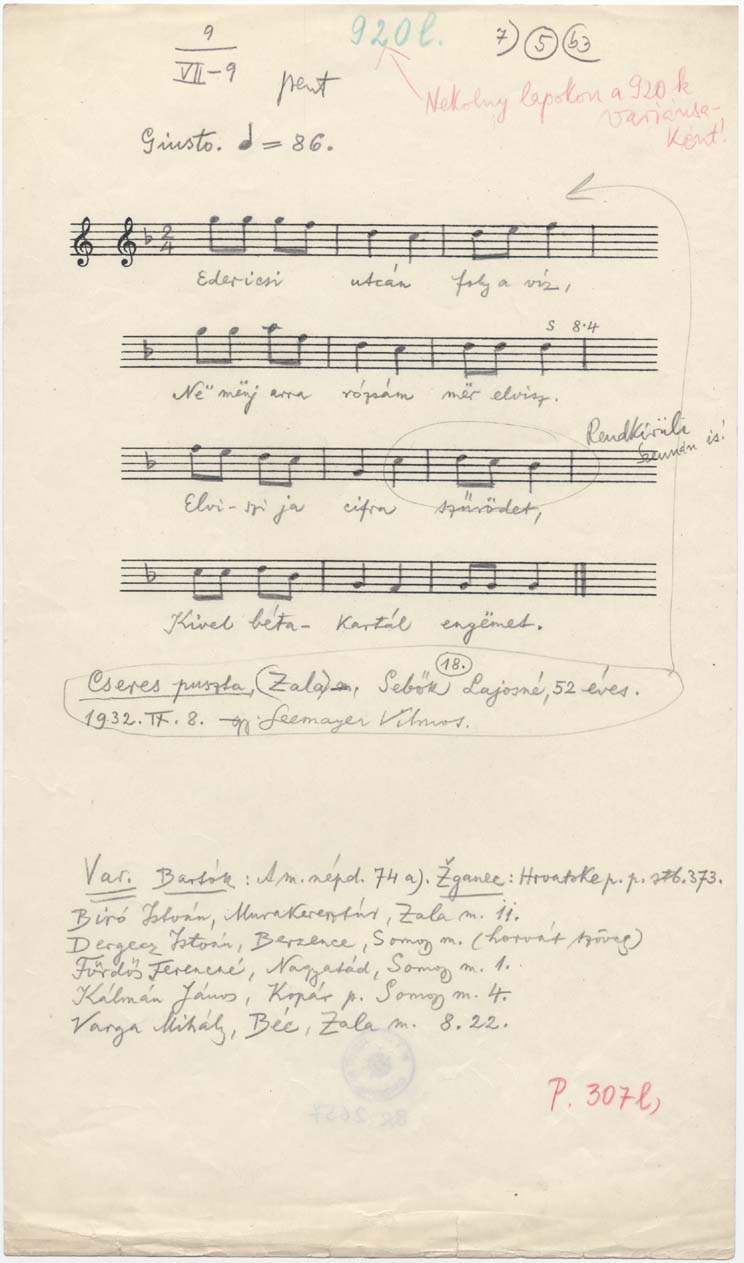 9
VII-9
920l.
7) 5 b3
pent
Nekolny lapokon a 920.k
variánsa-
ként!
Giusto. = 86.
2
4
Edericsi utcán foly a víz,
S 8.4
Në mënj arra rózsám mër elvisz.
Rendkívüli
is!
Elvi-szi ja cifra szűrödet,
Kivel béta- kartál engëmet.
Cseres puszta, (Zala) Sebők 18. Lajosné, 52 éves.
1932. IX. 8. Seemayer Vilmos.
Var. Bartók: A m. népd. 74 a). Žganec: Hrvatske p. p. 373.
Biró István, Murakeresztúr, Zala m. 11.
Dergecz István, Berzence, Somogy m. (horvát szöveg)
Fördős Ferencné, Nagyatád, Somogy m. 1.
Kálmán János, Kopár p. Somogy m. 4.
Varga Mihály, Béc, Zala m. 8.22.
BR 2657
P. 307l,